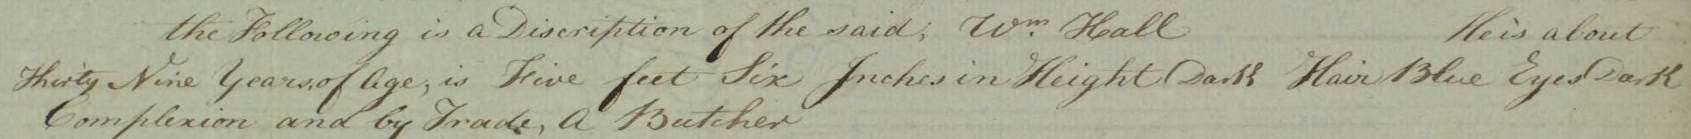 the Following is a Discription of the said; Wm. Hall He is about
Thirty Nine Years, of Age, is Five feet Six Inches in Height Dark Hair Blue Eyes Dark
Complexion and by Trade, A Butcher